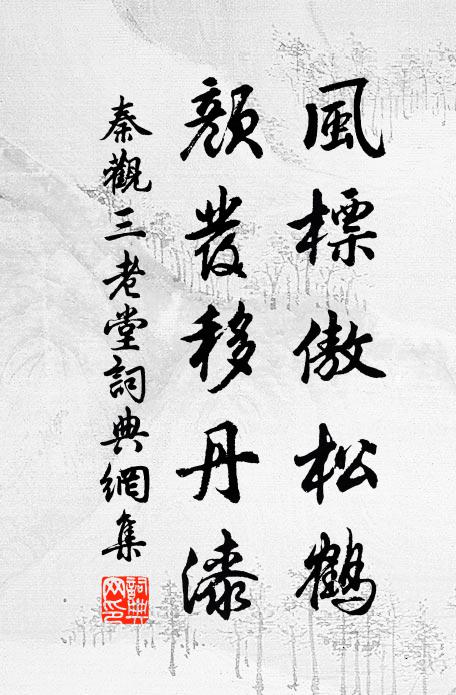 風標傲松鶴
顏發移丹漆
秦觀三老堂詞典網集
詞典網印